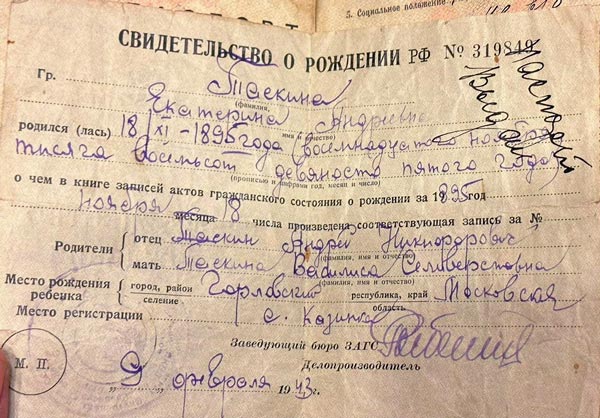 5. Социальное положение
СВИДЕТЕЛЬСТВО О РОЖДЕНИИ РФ № 319849
Гр. Таскина
(фамилия,
Екатерина Андреевна
имя и отчество)
Паспорт
Выдан
родился (лась) 18/XI - 1895 года (восемнадцатого ноября
тисяга восемьсот девяносто пятого года)
(прописью и цифрами год, месяц и число)
о чем в книге записей актов гражданского состояния о рождении за 1895 год
ноября месяца 18 числа произведена соответствующая запись за №
Родители
отец Таскин Андрей Никифорович
(фамилия, имя и отчество)
мать Таскина Василиса Селиверстовна
(фамилия, имя и отчество)
Место рождения ребенка
город, район Горловский республика, край Московская
селение область
Место регистрации с. Казинка
Заведующий бюро ЗАГС
Делопроизводитель
М. П.
„9" февраля 1943г.